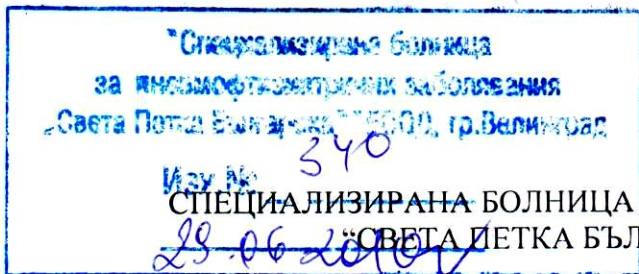 "Специализирана болница
за пневмофтизиатрични заболявания
„Света Петка Българска" ЕООД, гр.Велинград
Изх №
340
СПЕЦИАЛИЗИРАНА БОЛНИЦА
"СВЕТА ПЕТКА БЪЛ
29.06.20